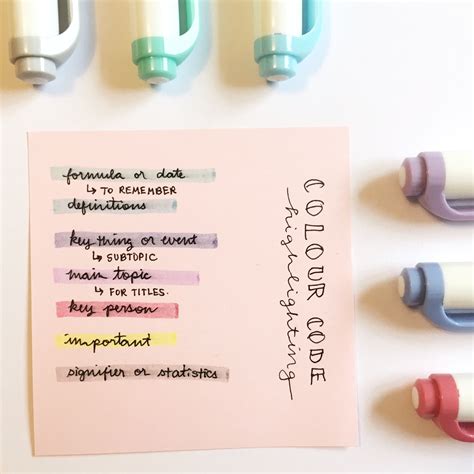 formula or date
↳ TO REMEMBER
definitions
key thing or event
↳ SUBTOPIC
main topic
↳ FOR TITLES.
key person
important
signifier or statistics
COLOUR CODE
highlighting